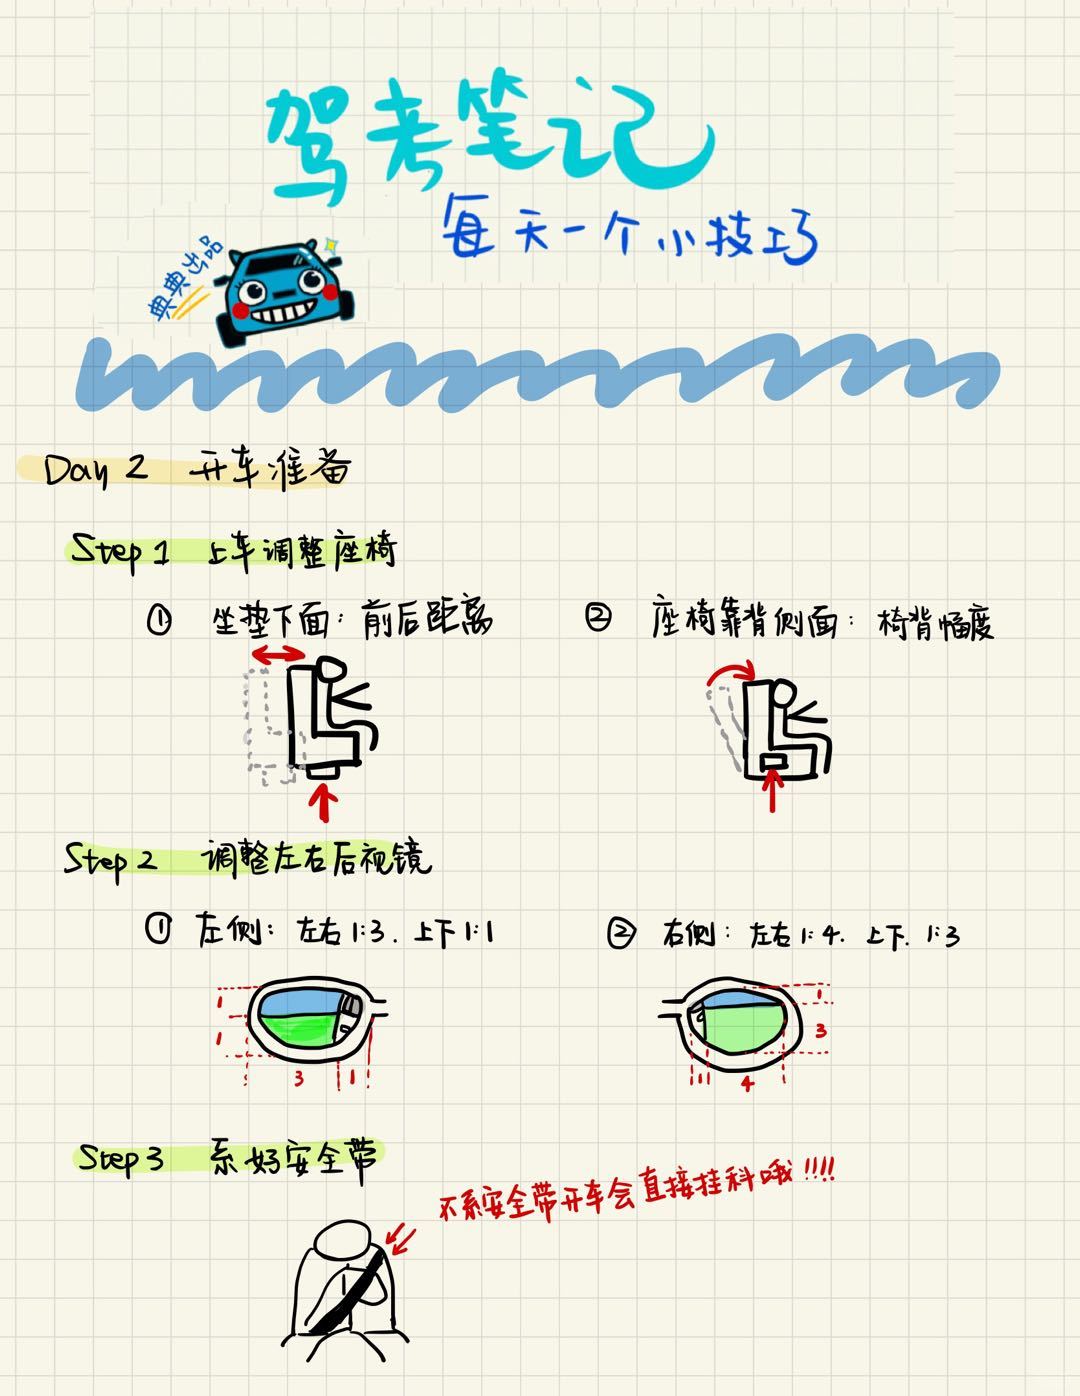 驾考笔记
每天一个小技巧
典典出品
Day 2 开车准备
Step 1 上车调整座椅
① 坐垫下面：前后距离
② 座椅靠背侧面：椅背幅度
Step 2 调整左右后视镜
① 左侧：左右1:3. 上下1:1
② 右侧：左右1:4. 上下. 1:3
1
1
3
1
1
3
1
4
Step 3 系好安全带
不系安全带开车会直接挂科哦!!!!